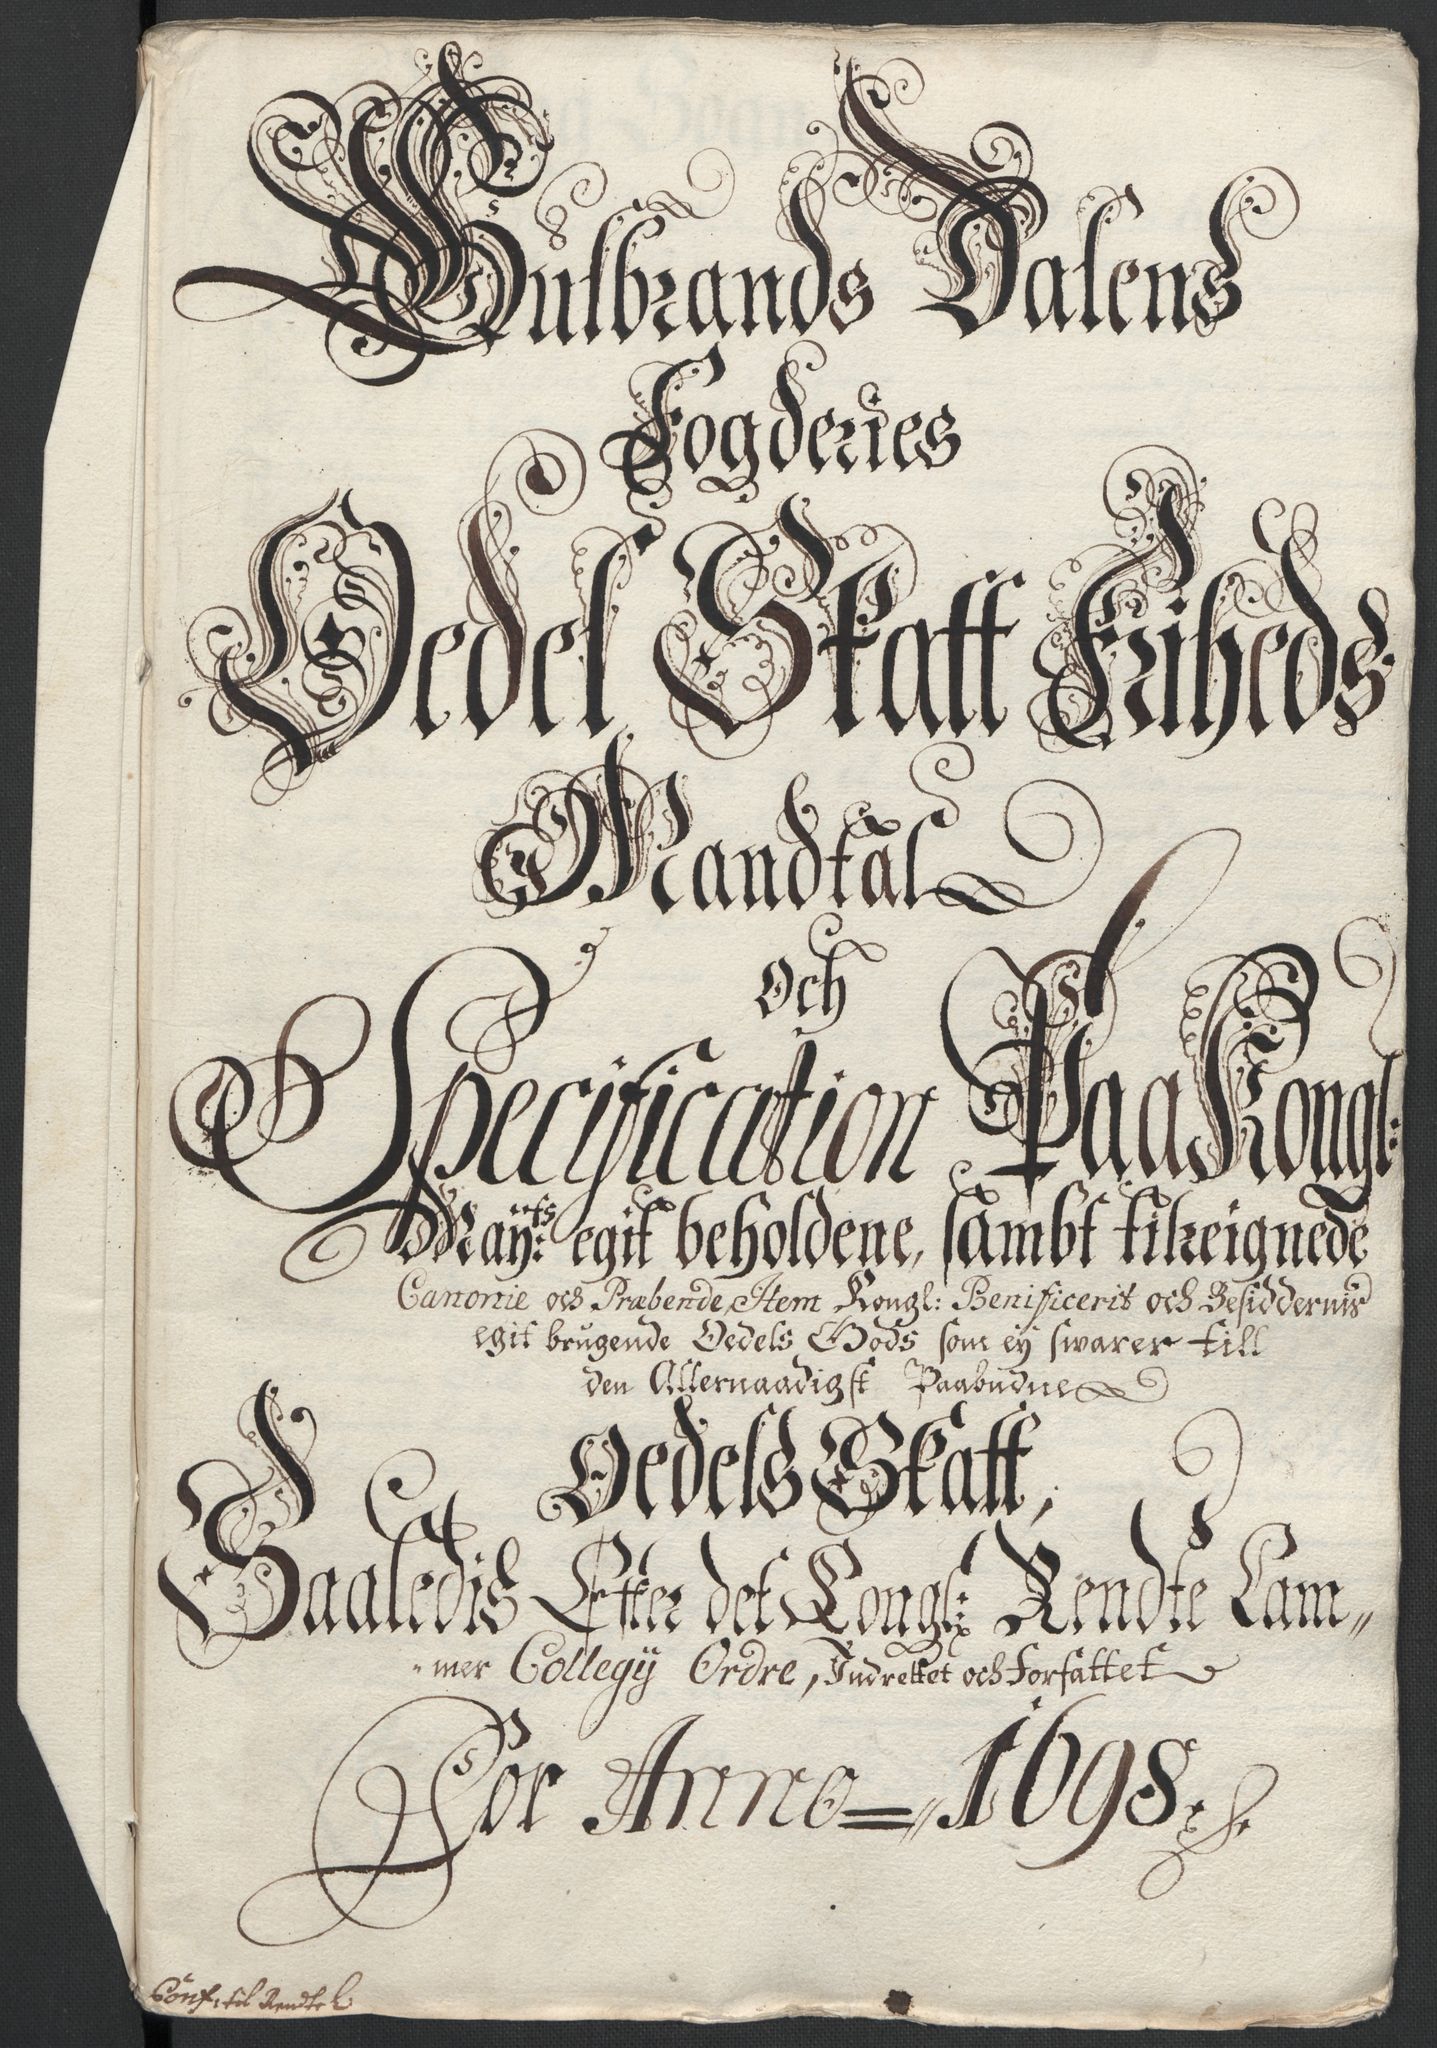 Gulbrands Dalens
Fogderies
Oedel Skatt Friheds
Mandtal
Och
Specification Paa Kongl:
Mayts: egit beholdene, sambt tilleignede
Canonie och Præbende, Item Kongl: Benificerit och Besiddernis
egit brugende Oedels Gods som ey swarer till
den Allernaadigst Paabudne
Oedels Skatt,
Saaledis Efter det Kongl: Rendte Cam„
„mer Collegij Ordre, Indrettet och Forfattet
For Anno 1698
til Rendtek